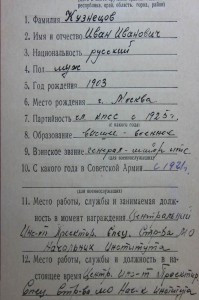 республики, край, область, город, район)
1. Фамилия Кузнецов
2. Имя и отчество Иван Иванович
3. Национальность русский
4. Пол муж
5. Год рождения 1903
6. Место рождения г. Москва
7. Партийность чл. КПСС с 1925 г.
(с какого года)
8. Образование высшее - военное
9. Воинское звание генерал-
(для военнослужащих)
10. С какого года в Советской Армии с 1921 г.
(для военнослужащих)
11. Место работы, службы и занимаемая долж-
ность в момент награждения Центральный
Ин-т Проектир. Спец. Стр-ва МО
Начальник Института
12. Место работы, службы и должность в на-
стоящее время Центр. Ин-т Проектир
Спец. Стр-ва МО Нач-к Института